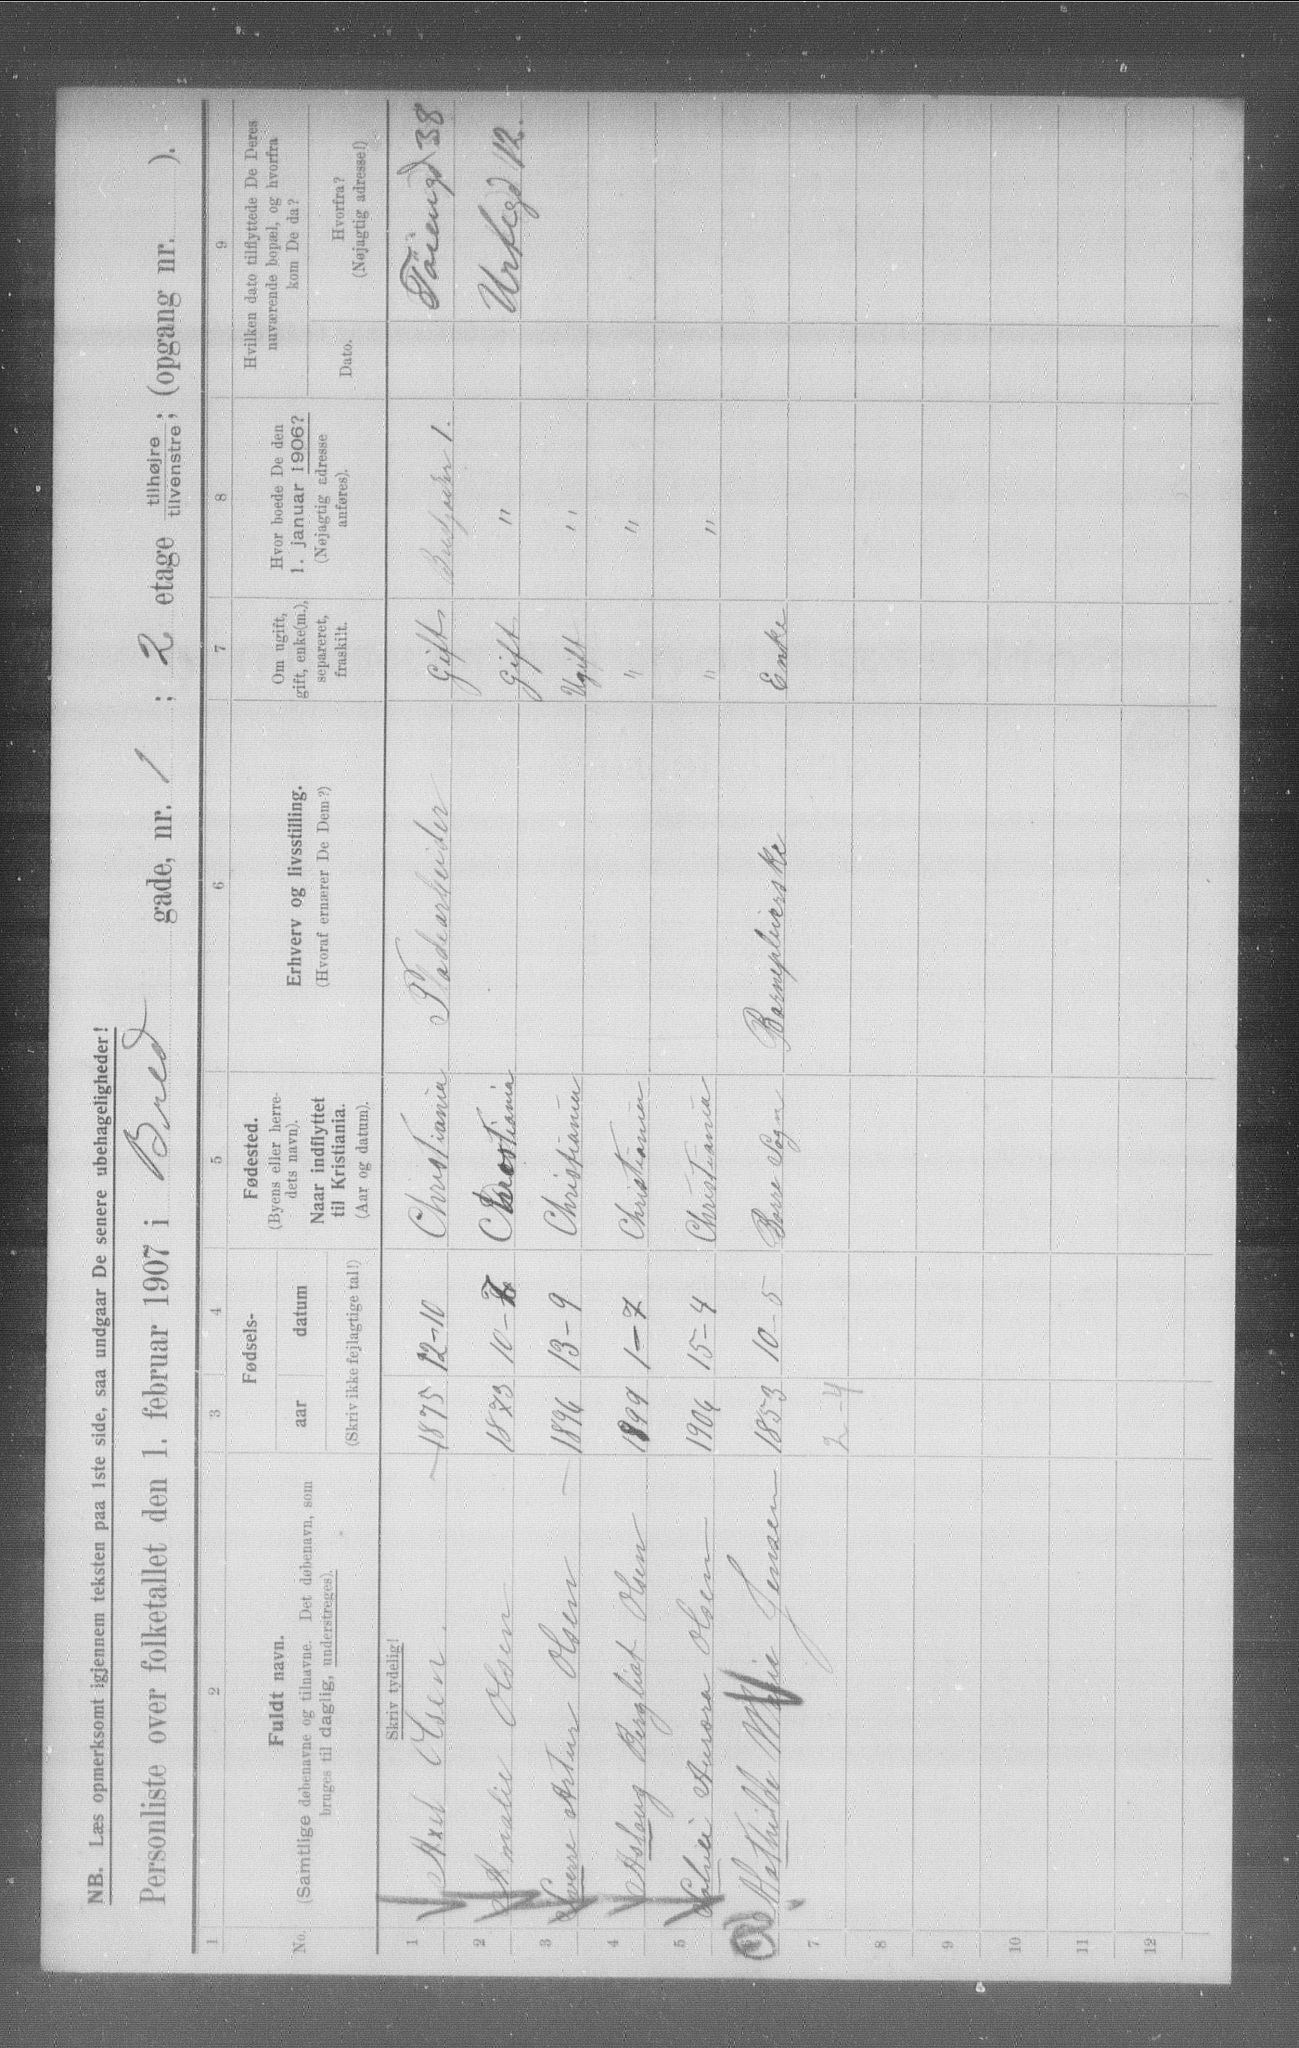 NB. Læs opmerksomt igjennem teksten paa 1ste side, saa undgaar De senere ubehageligheder!
Personliste over folketallet den 1. februar 1907 i Bred gade, nr. 1 ; 2 etage tilhøjre / tilvenstre ; (opgang nr. ).
1 2 3 4 5 6 7 8 9
No.
Fuldt navn.
(Samtlige døbenavne og tilnavne. Det døbenavn, som
bruges til daglig, understreges).
Fødsels-
aar datum
(Skriv ikke fejlagtige tal!)
Fødested.
(Byens eller herre-
dets navn).
Naar indflyttet
til Kristiania.
(Aar og datum).
Erhverv og livsstilling.
(Hvoraf ernærer De Dem?)
Om ugift,
gift, enke(m.),
separeret,
fraskilt.
Hvor boede De den
1. januar 1906?
(Nøjagtig adresse
anføres).
Hvilken dato tilflyttede De Deres
nuværende bopæl, og hvorfra
kom De da?
Dato.
Hvorfra?
(Nøjagtig adresse!)
Skriv tydelig!
1 Axel Olsen. 1875 12-10 Christiania Gift 1. 38
2 Amalie Olsen 1873 10- Christiania Gift " Urtegd 12.
3 Sverre Artur Olsen 1896 13-9 Christiania Ugift "
4 Aslaug Bergliot Olsen 1899 1-7 Christiania " "
5 Solvei Aurora Olsen 1906 15-4 Christiania " "
6 Mathilde Marie Jensen 1853 10-5 Borre Sogn Barnepleierske Enke
7 2-4
8
9
10
11
12